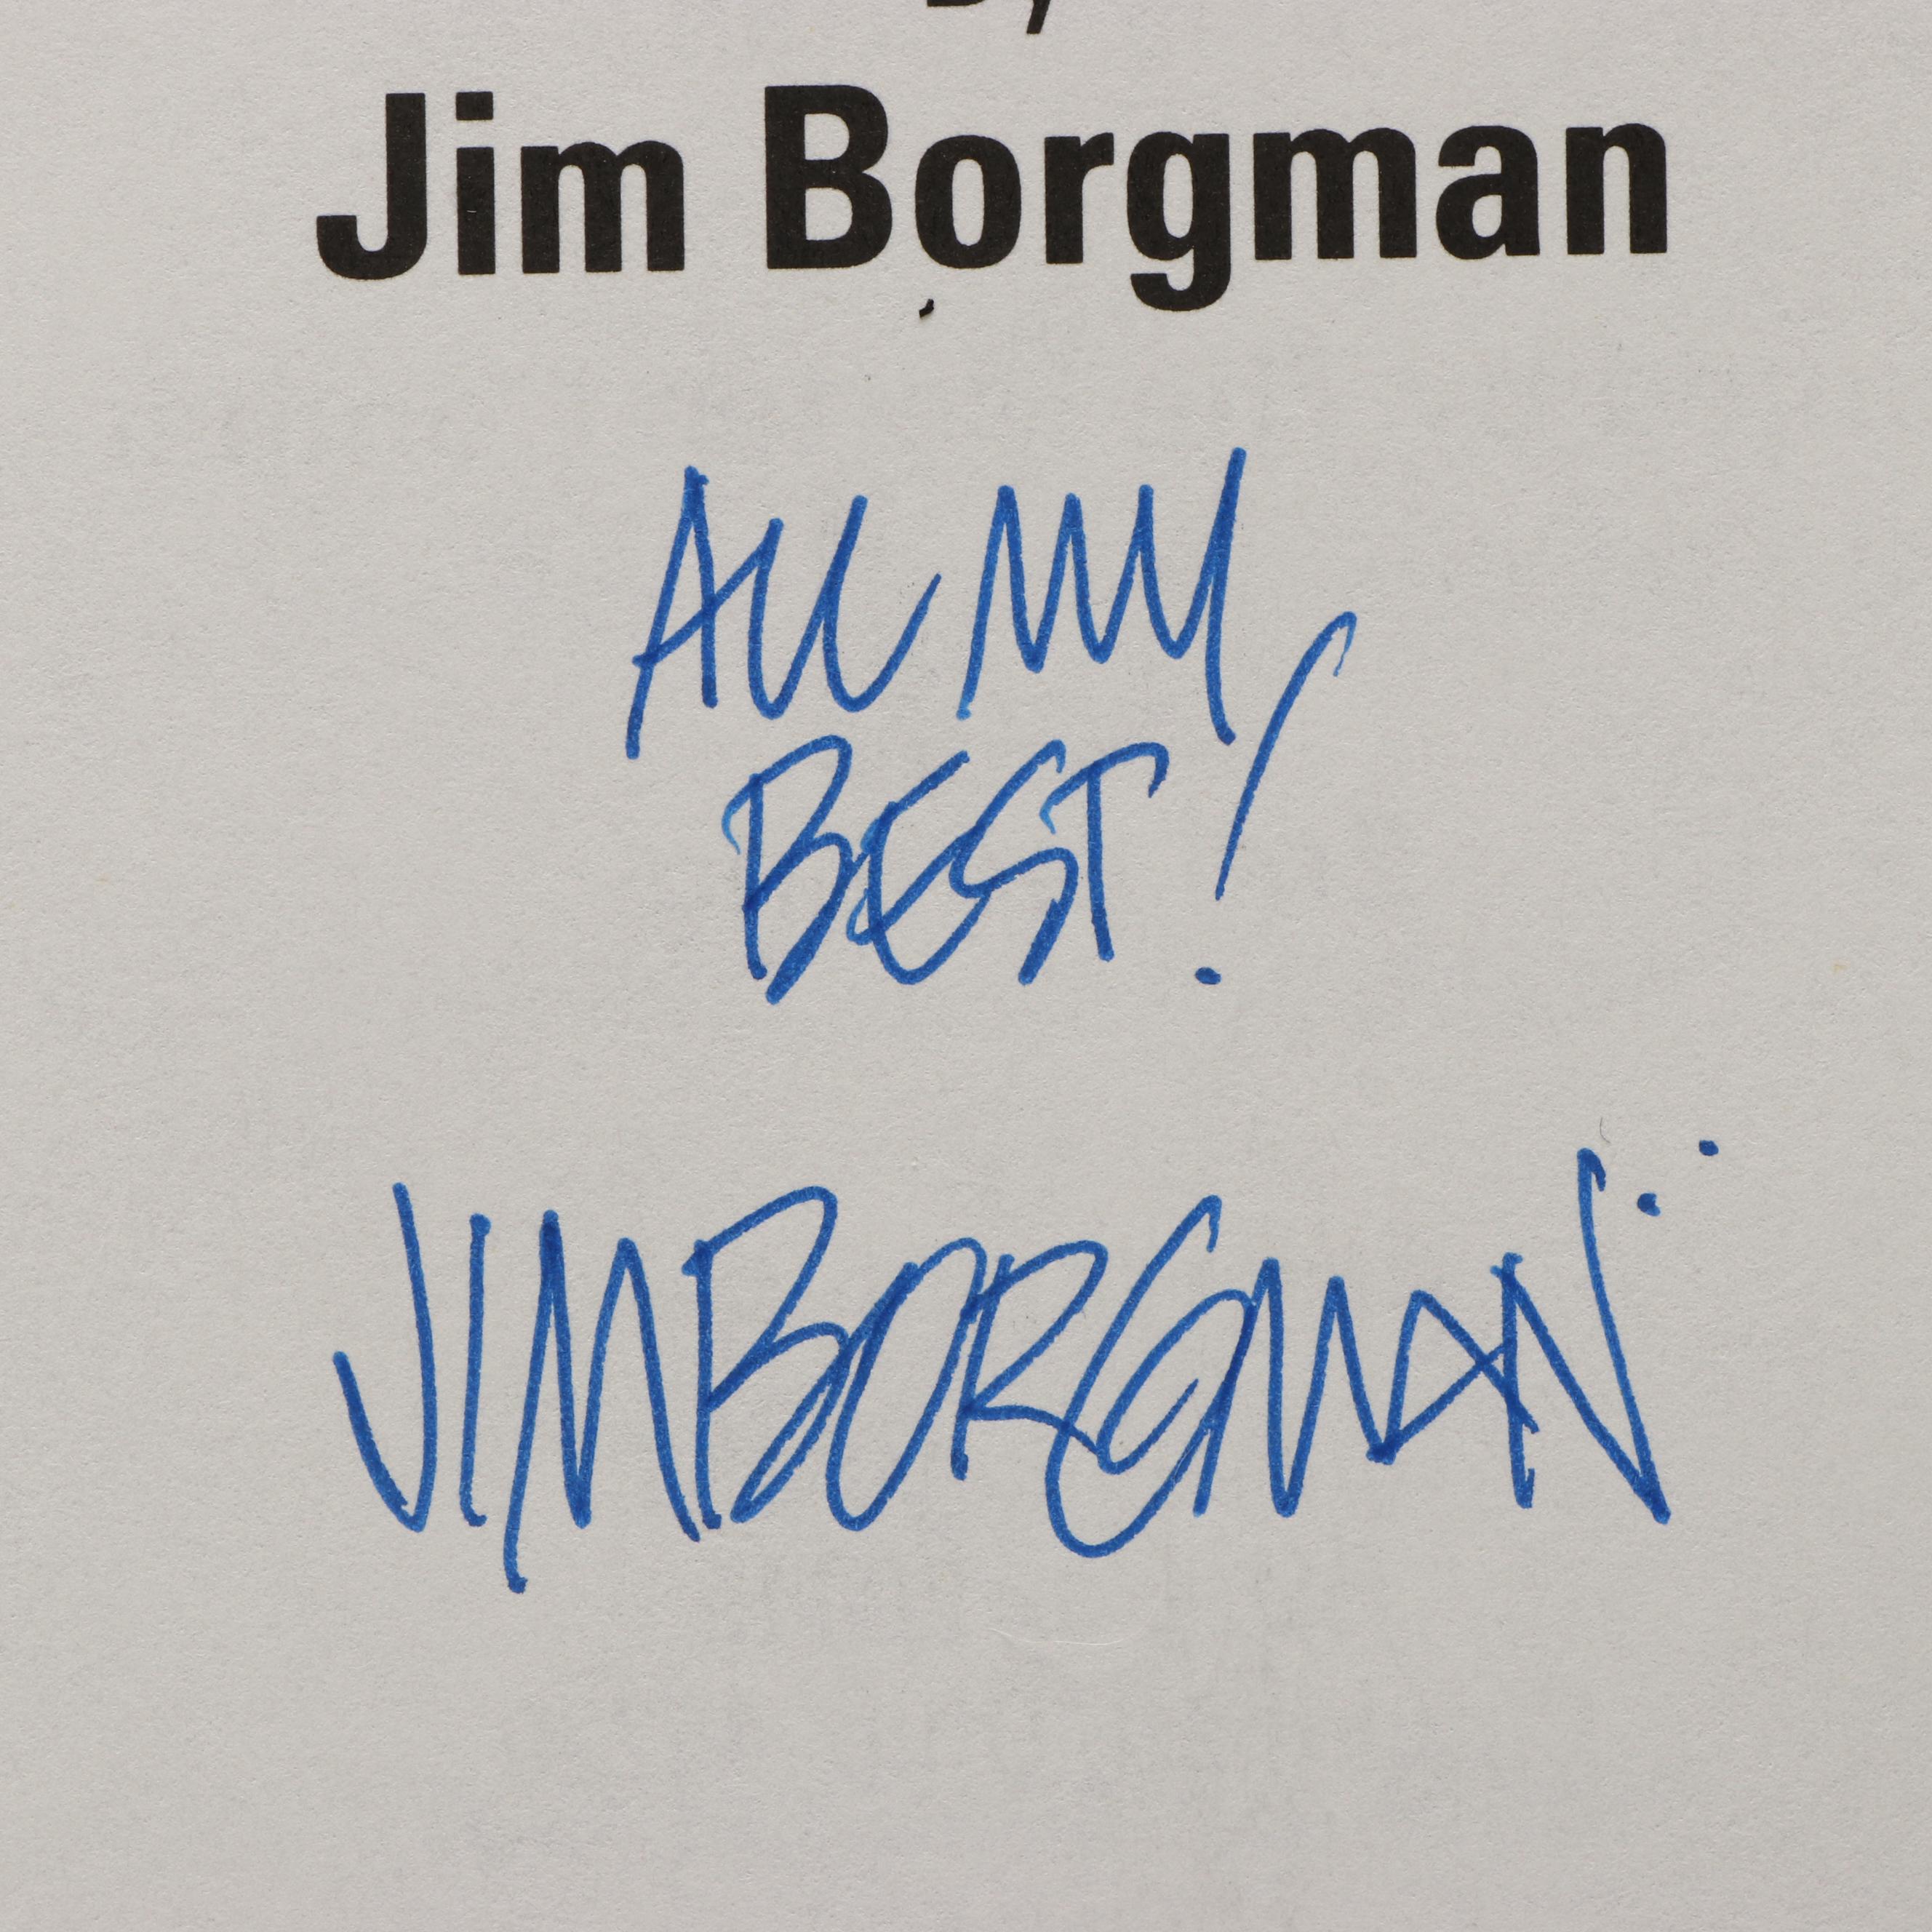 Jim Borgman
ALL MY
BEST!
JIM BORGMAN